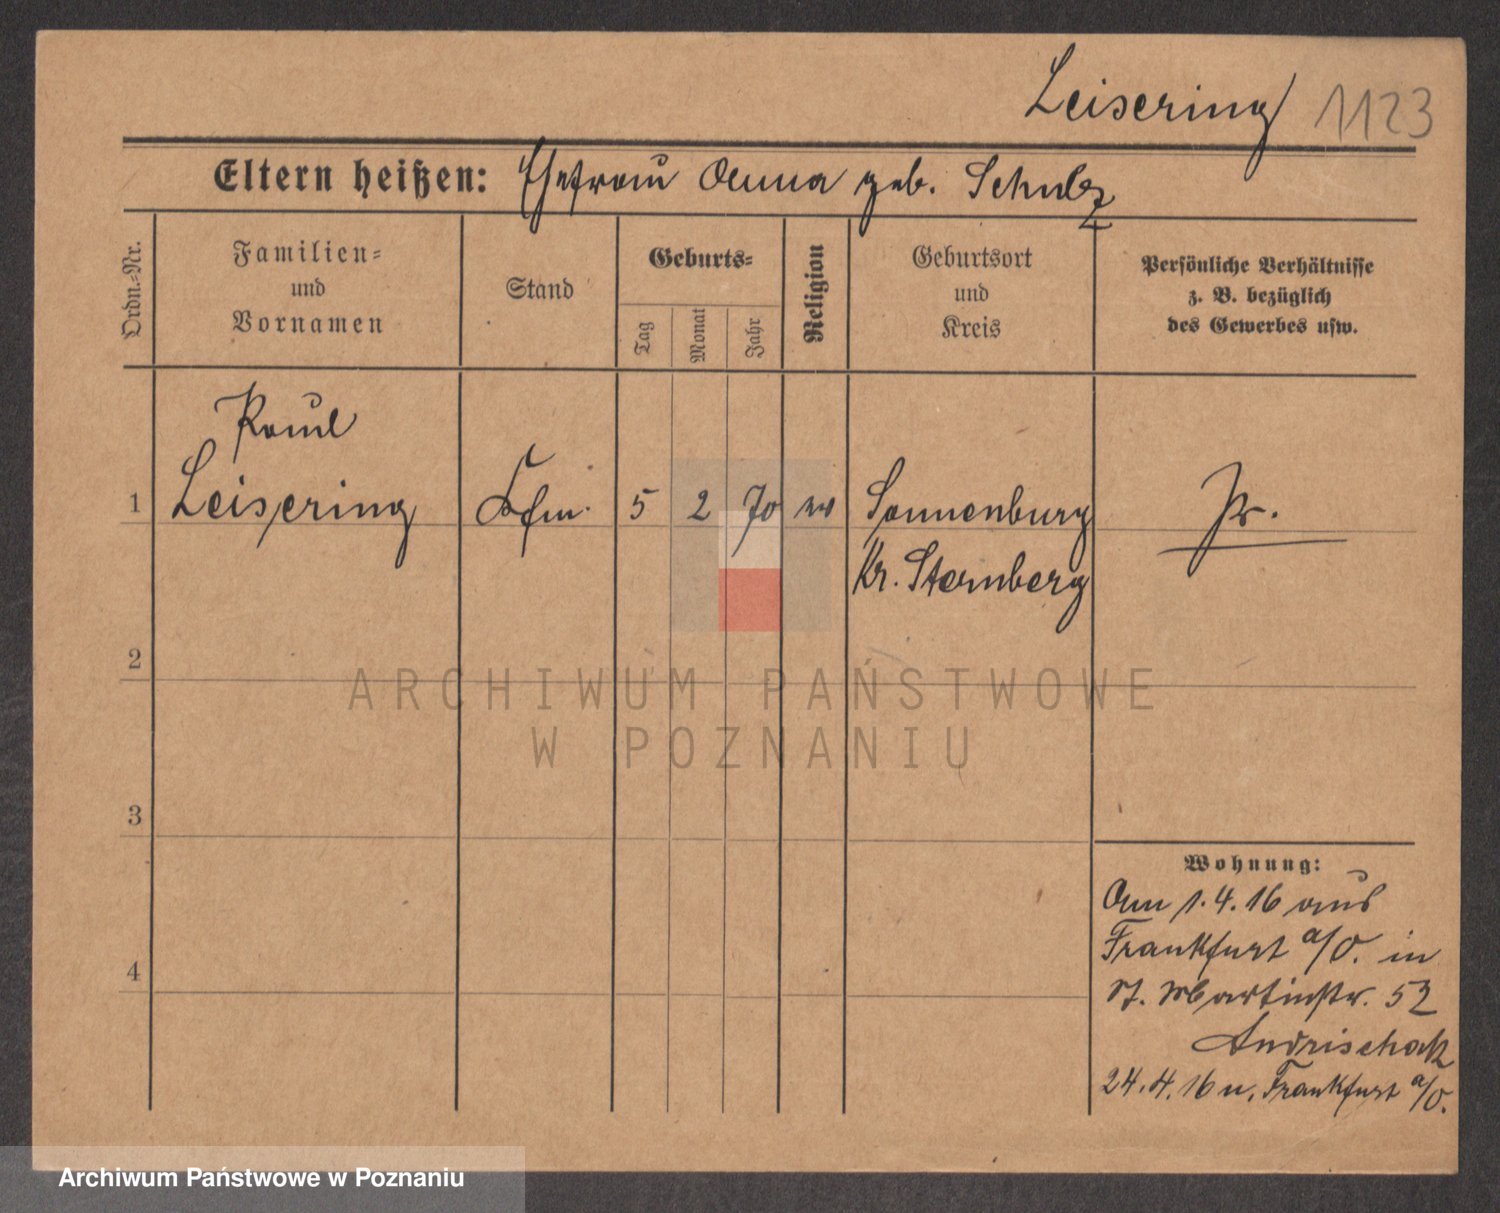 Leisering 1123
Eltern heißen: Ehefrau Anna geb. Schulz
Ordn.=Nr.
Familien=
und
Vornamen
Stand
Geburts=
Tag
Monat
Jahr
Religion
Geburtsort
und
Kreis
Persönliche Verhältnisse
z. B. bezüglich
des Gewerbes usw.
Paul
1 Leisering Kfm. 5 2 70 ev Sonnenburg Pr.
Kr. Sternberg
2
ARCHIWUM PAŃSTWOWE
W POZNANIU
3
Wohnung:
Am 1.4.16 aus
Frankfurt a/O. in
St. Martinstr. 52
Andrischak
4
24.4.16 n. Frankfurt a/O.
Archiwum Państwowe w Poznaniu